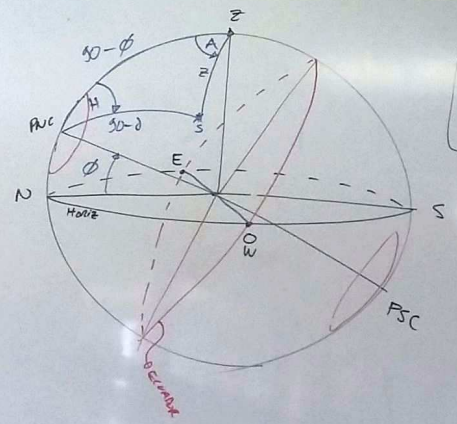 Z
90-ϕ
A
Z
H
90-δ
S
PNC
ϕ
E
N
S
HORIZ
O
W
PSC
ECUADOR